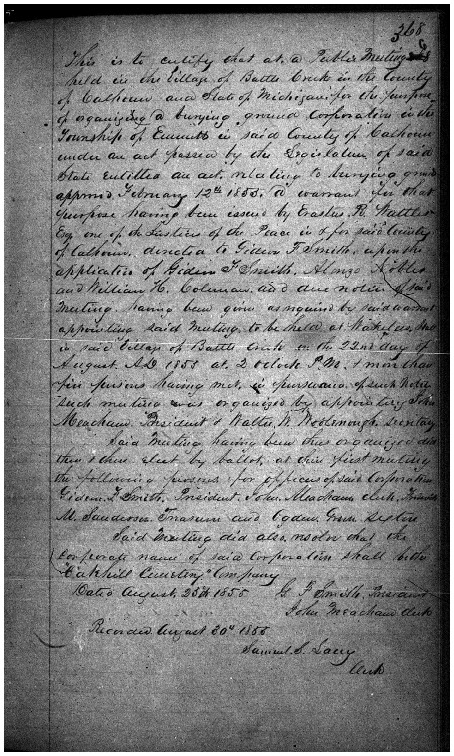 368
This is to certify that at a Public Meeting
held in the Village of Battle Creek in the County
of Calhoun and State of Michigan for the purpose
of organizing a burying ground Corporation in the
Township of Emmett in said County of Calhoun
under an act passed by the Legislature of said
State entitled an act relating to burying ground
approved February 12th 1855. A warrant for that
purpose having been issued by Erastus R. Wattles
Esq one of the Justices of the Peace in & for said County
of Calhoun, directed to Gideon F Smith, upon the
application of Gideon F Smith, Alonzo Noble
and William H. Coleman and due notice of said
Meeting having been given as required by said warrant
appointing said Meeting to be held at Wakelee Hall
in said Village of Battle Creek on the 22nd day of
August A.D 1855 at 2 oclock P.M. & more than
five persons having met, in pursuance of such Notice
such meeting was organized by appointing John
Meacham President & Walter W Woolnough Secretary
Said Meeting having been thus organized did
then & there elect by ballot, at their first meeting
the following persons for officers of said Corporation
Gideon F Smith, President, John Meacham clerk,
M. Sanderson Treasurer and Ogden Green Sexton
Said Meeting did also resolve that the
corporate name of said Corporation shall be the
"Oakhill Cemetery" Company
Dated August 25th 1855 G F Smith, President
John Meacham Clerk
Recorded August 30th 1855
Samuel S. Lacey
Clerk